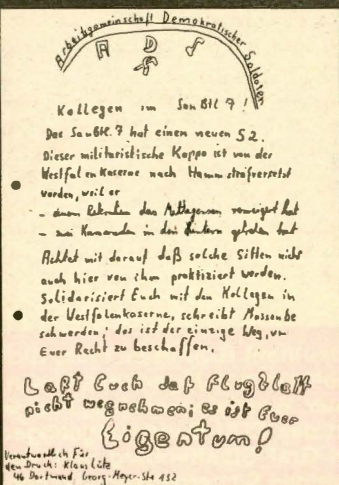 Arbeitsgemeinschaft Demokratischer Soldaten
A D S
Kollegen im San Btl 7!
Das SanBtl. 7 hat einen neuen S2.
Dieser militaristische Kappo ist von der
Westfalenkaserne nach Hamm strafversetzt
worden, weil er
- einem Rekruten das Mittagessen verweigert hat
- zwei Kameraden in den hat
Achtet mit darauf daß solche Sitten nicht
auch hier von ihm praktiziert werden.
Solidarisiert Euch mit den Kollegen in
der Westfalenkaserne, schreibt Massenbe
schwerden; das ist der einzige Weg, um
Euer Recht zu beschaffen.
Laßt Euch das Flugblatt
nicht wegnehmen; es ist Euer
Eigentum!
Verantwortlich Für
den Druck: Klaus Lütz
46 Dortmund, Georg-Meyer-Str 132